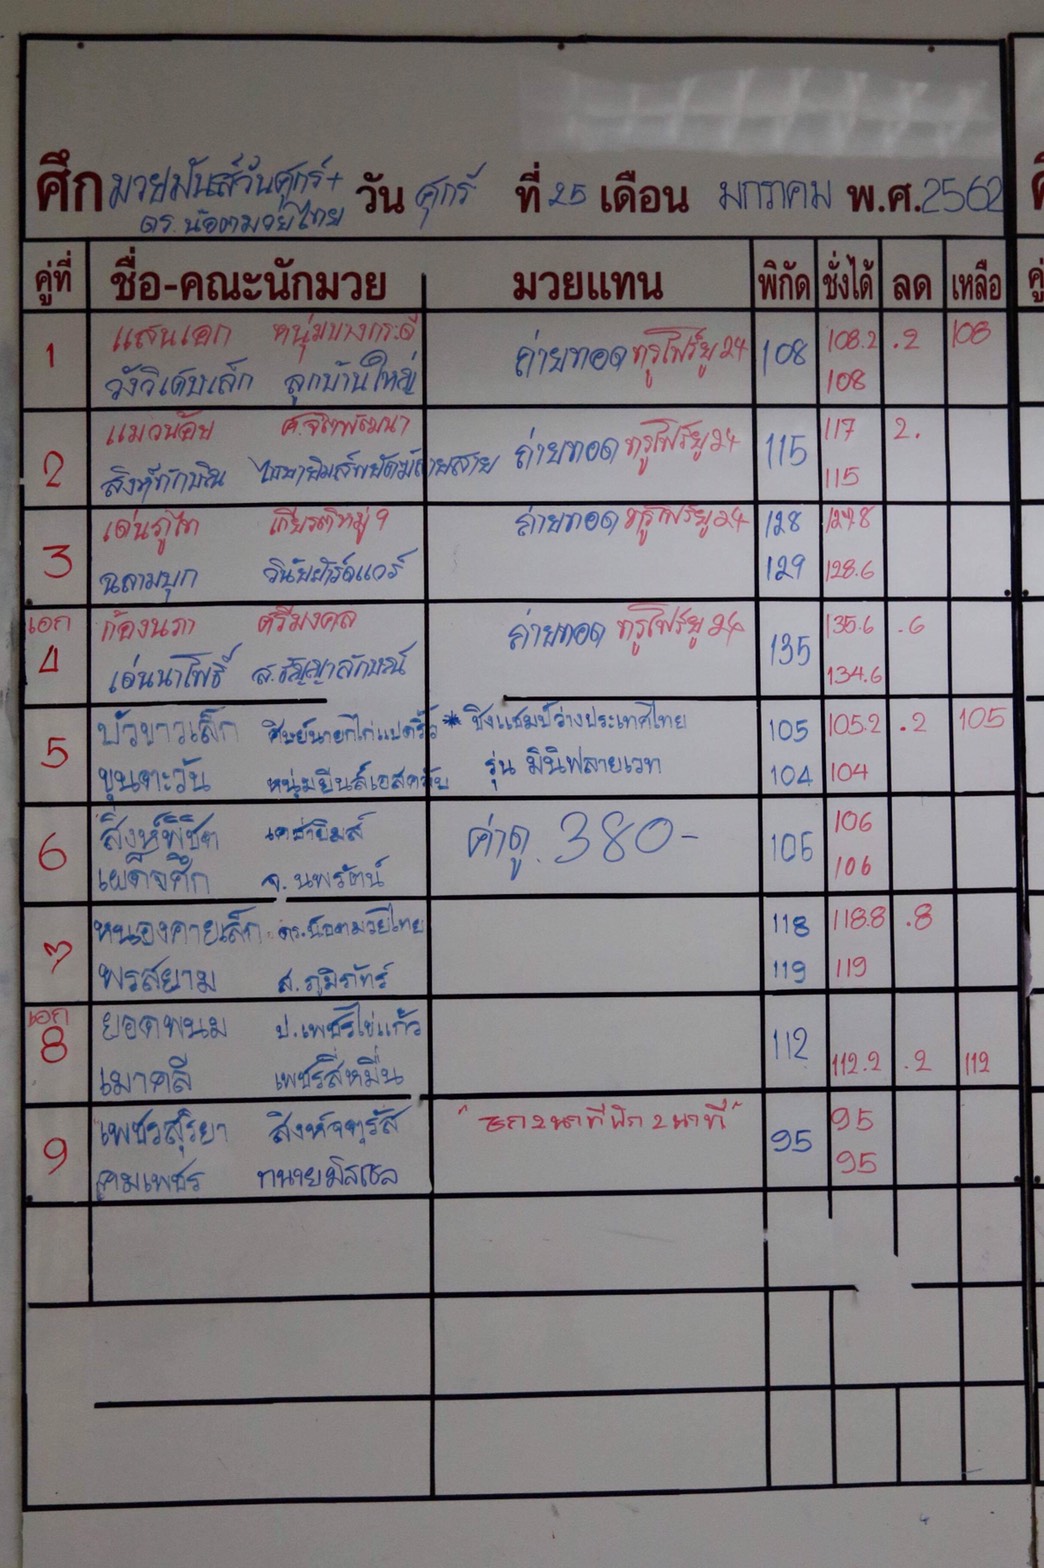 ศึก มวยมันส์วันศุกร์+ วัน ศุกร์ ที่ 25 เดือน มกราคม พ.ศ. 2562
ดร. น้อตมวยไทย
คู่ที่ ชื่อ-คณะนักมวย มวยแทน พิกัด ชั่งได้ ลด เหลือ
1 แสนเอก หนุ่มบางกะดี 108.2 .2 108
วังวิเศษเล็ก ลูกบ้านใหญ่ ถ่ายทอด ทรูโฟร์ยู 24 108 108
2 แมวน้อย ศ.จิตพัฒนา 117 2.
สิงห์ทักษิณ ถ่ายทอด ทรูโฟร์ยู 24 115 115
3 เด่นภูไท เกียรติหมู่ 9 ถ่ายทอด ทรูโฟร์ยู 24 128 127.8
ฉลามบุก วินัยเวิร์คแวร์ 129 128.6
เอก ก้องนภา ศรีมงคล ถ่ายทอด ทรูโฟร์ยู 24 135.6 .6
4 เด่นนำโพธิ์ ส.ธัญญาลักษณ์ 135 134.6
5 บัวขาวเล็ก ศิษย์นายกไก่แปดริ้ว * ชิงแชมป์ว่างประเทศไทย 105 105.2 .2 105
ขุนตะวัน รุ่น มินิฟลายเวท 104 104
6 สิงห์พิชิต ค่าดู 380- 106 106
เผด็จศึก จ.นพรัตน์ 106
7 หนองคายเล็ก ดร.น้อตมวยไทย 118 118.8 .8
พรสยาม ส.ภูมิภัทร์ 119 119
เอก ยอดพนม ป.เพชรไข่แก้ว 112
8 เมาคลี เพชรสี่หมื่น 112.2 .2 112
9 เพชรสุริยา สิงห์จตุรัส "ชก 2 นาที พัก 2 นาที" 95 95
คมเพชร 95